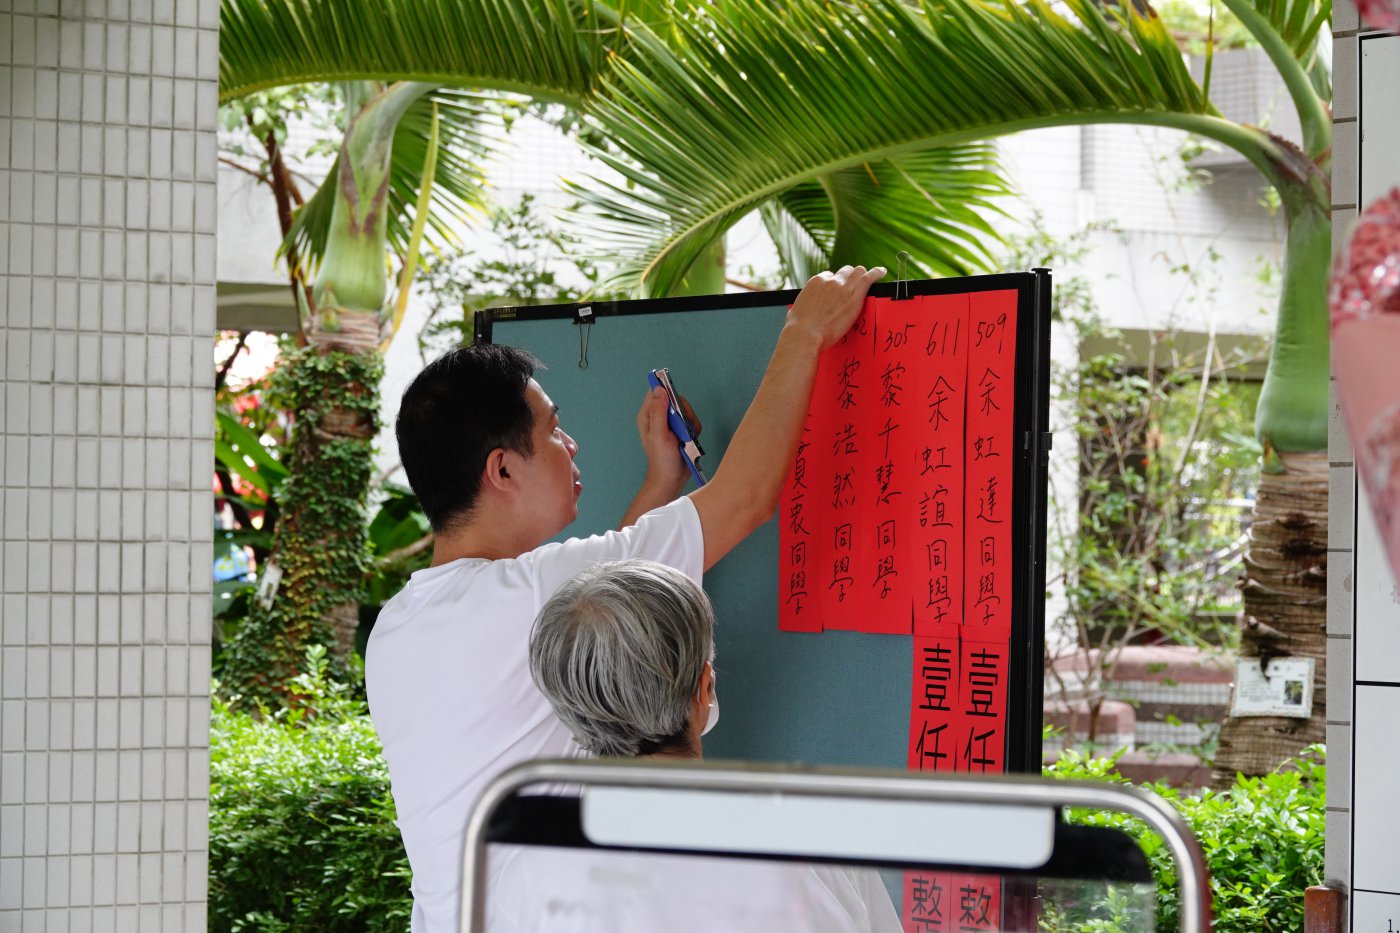 509余虹達同學
611余虹誼同學
305黎千慧同學
黎浩然同學
衷同學
壹任
壹任
整
整